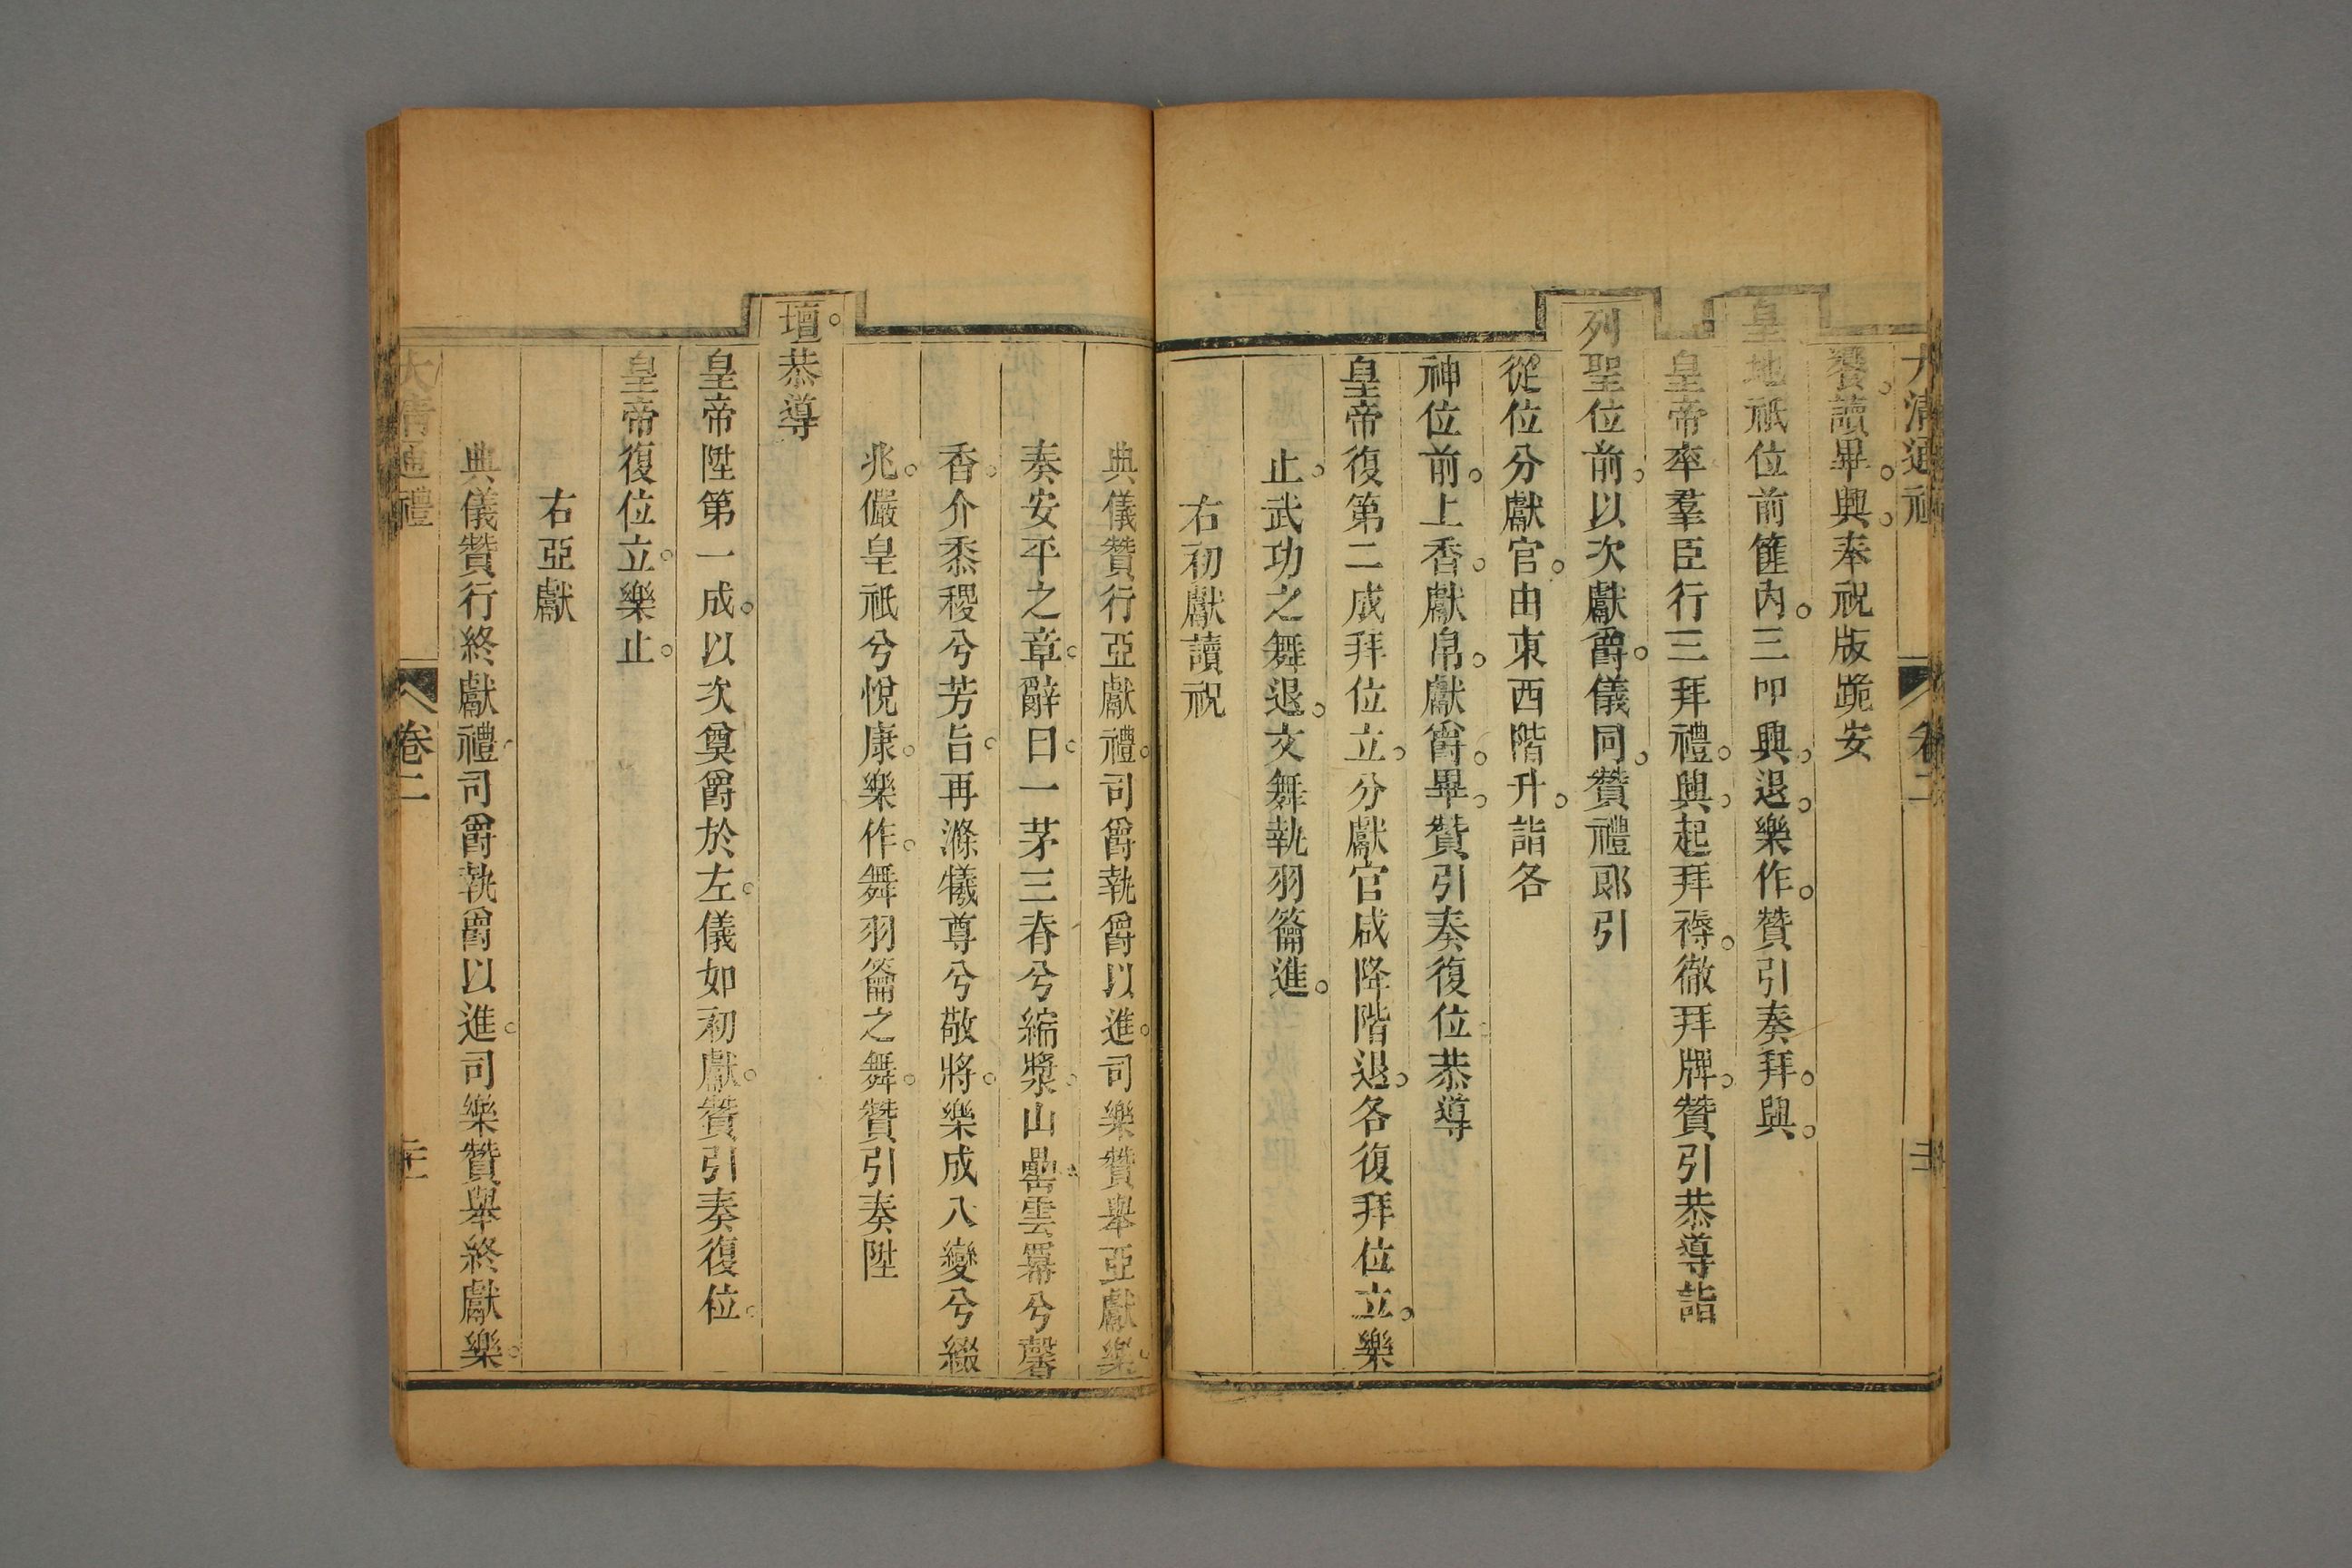 大清通禮 卷二
饗。讀畢。興。奉祝版跪安
皇地祇位前篚內。三叩興。退。樂作。贊引奏拜。興。
皇帝率羣臣行三拜禮。興。起拜褥。徹拜牌。贊引恭導詣
列聖位前。以次獻爵。儀同。贊禮郎引
從位分獻官。由東西階升。詣各
神位前。上香。獻帛。獻爵。畢。贊引奏復位恭導
皇帝復第二成拜位立。分獻官咸降階退。各復拜位立。樂
止。武功之舞退。文舞執羽籥進。
右初獻讀祝
典儀贊行亞獻禮。司爵執爵以進。司樂贊舉亞獻樂。
奏安平之章。辭曰。一茅三脊兮縮漿。山罍雲冪兮馨
香。介黍稷兮芳旨。再滌犧尊兮敬將。樂成八變兮綴
兆。儼皇祇兮悅康。樂作。舞羽籥之舞。贊引奏陞
壇。恭導
皇帝陞第一成。以次奠爵於左。儀如初獻。贊引奏復位。
皇帝復位立。樂止。
右亞獻
典儀贊行終獻禮。司爵執爵以進。司樂贊舉終獻樂。
大清通禮 卷二